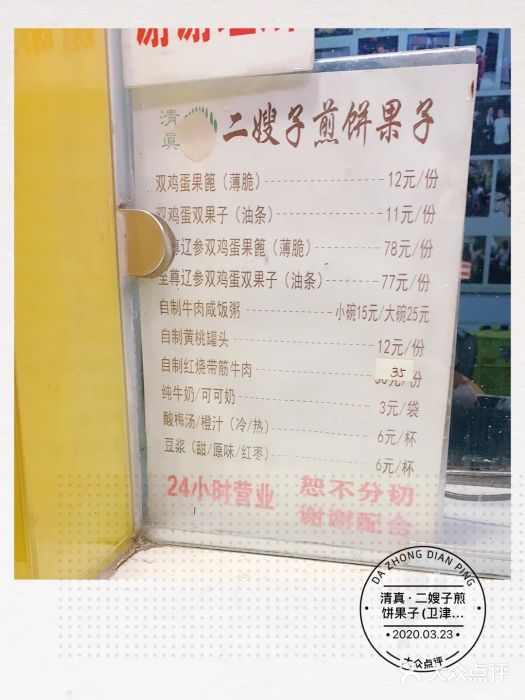 清真
二嫂子煎饼果子
双鸡蛋果篦（薄脆）------12元/份
双鸡蛋双果子（油条）------11元/份
尊辽参双鸡蛋果篦（薄脆）------78元/份
至尊辽参双鸡蛋双果子（油条）------77元/份
自制牛肉咸饭粥------小碗15元/大碗25元
自制黄桃罐头------12元/份
自制红烧带筋牛肉------35元/份
纯牛奶/可可奶------3元/袋
酸梅汤/橙汁（冷/热）------6元/杯
豆浆（甜/原味/红枣）------6元/杯
24小时营业 恕不分切
谢谢配合
DA ZHONG DIAN PING
清真·二嫂子煎
饼果子(卫津...
2020.03.23
大众点评
大众点评